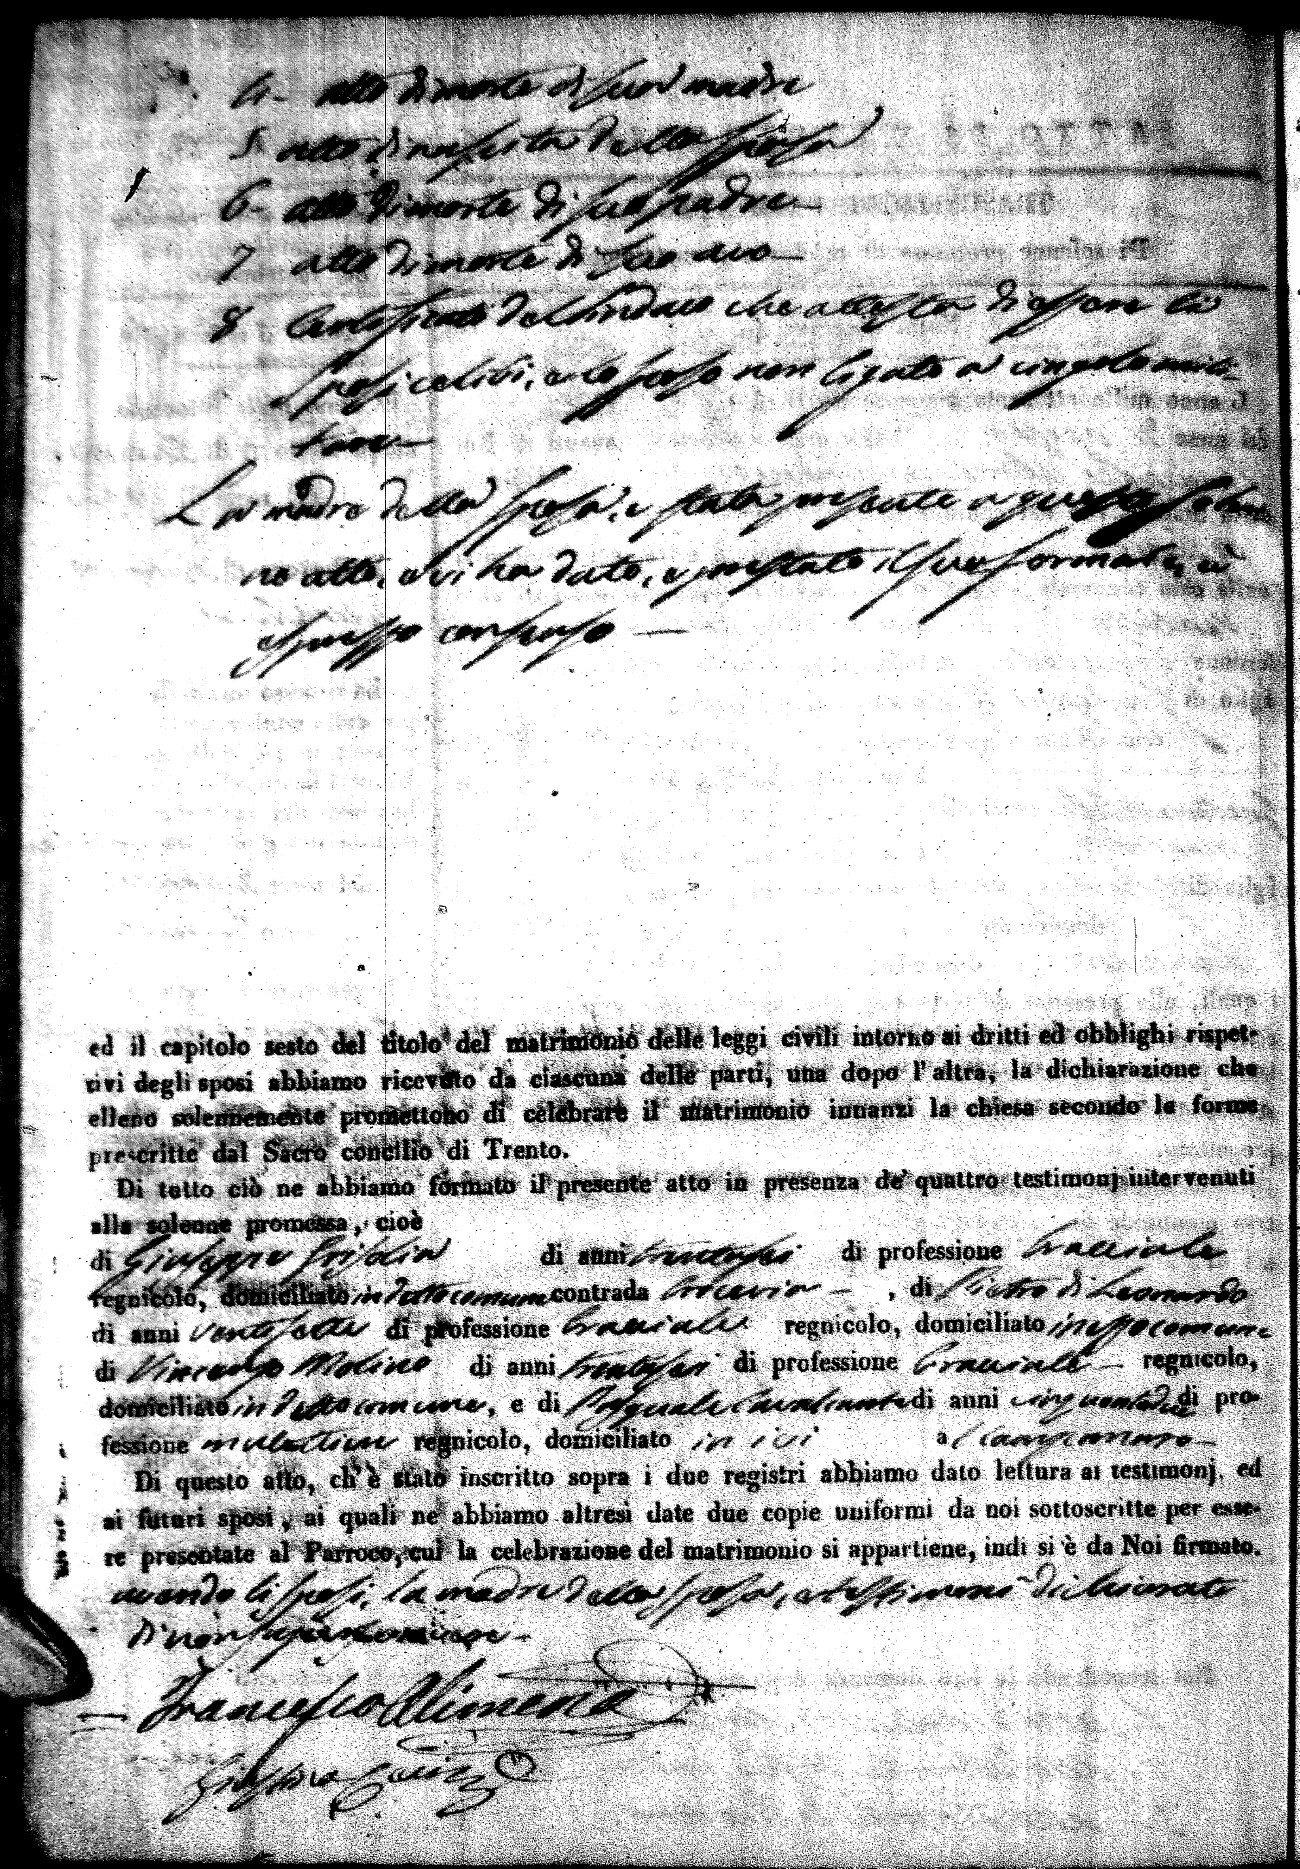 4- atto di morte di sua madre
5 atto di nascita della sposa
6- atto di morte di suo padre
7 atto di morte di suo avo
8 Certificato del Sindaco che attesta di essere li
sposi celibi, e lo sposo non ligato a cingolo mili-
tare
La madre della sposa, è stata presente a questo solen-
ne atto, e vi ha dato, e prestato il suo formale, ed
espresso consenso —
ed il capitolo sesto del titolo del matrimonio delle leggi civili intorno ai dritti ed obblighi rispet-
tivi degli sposi abbiamo ricevuto da ciascuna delle parti, una dopo l'altra, la dichiarazione che
elleno solennemente promettono di celebrare il matrimonio innanzi la chiesa secondo le forme
prescritte dal Sacro concilio di Trento.
Di tutto ciò ne abbiamo formato il presente atto in presenza de' quattro testimonj intervenuti
alla solenne promessa, cioè
di Giuseppe Grisolia di anni trentasei di professione bracciale
regnicolo, domiciliato in detto comune contrada , di Pietro di Leonardo
di anni ventisette di professione bracciale regnicolo, domiciliato in esso comune
di Vincenzo Molino di anni trentasei di professione bracciale regnicolo,
domiciliato in detto comune, e di Pasquale Cavalcante di anni di pro-
fessione regnicolo, domiciliato in ivi a
Di questo atto, ch'è stato inscritto sopra i due registri abbiamo dato lettura ai testimonj, ed
ai futuri sposi, ai quali ne abbiamo altresì date due copie uniformi da noi sottoscritte per esse-
re presentate al Parroco, cui la celebrazione del matrimonio si appartiene, indi si è da Noi firmato.
avendo li sposi, la madre della sposa, e testimoni dichiarato
di non saper
Francesco Alimena